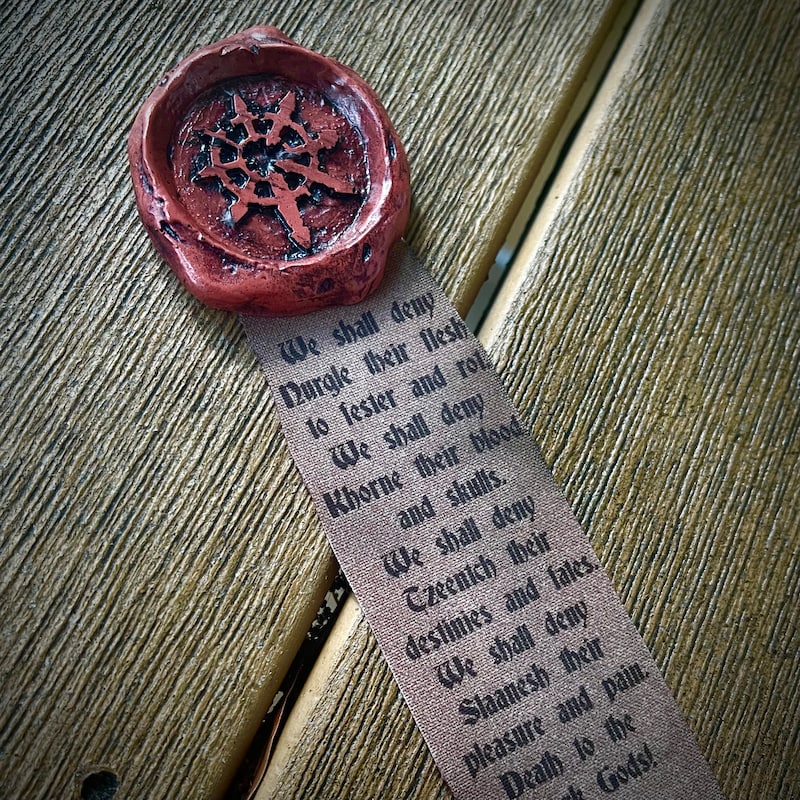 We shall deny
Nurgle their flesh
to fester and rot.
We shall deny
Khorne their blood
and skulls.
We shall deny
Tzeentch their
destinies and fates.
We shall deny
Slaanesh their
pleasure and pain.
Death to the
Gods!